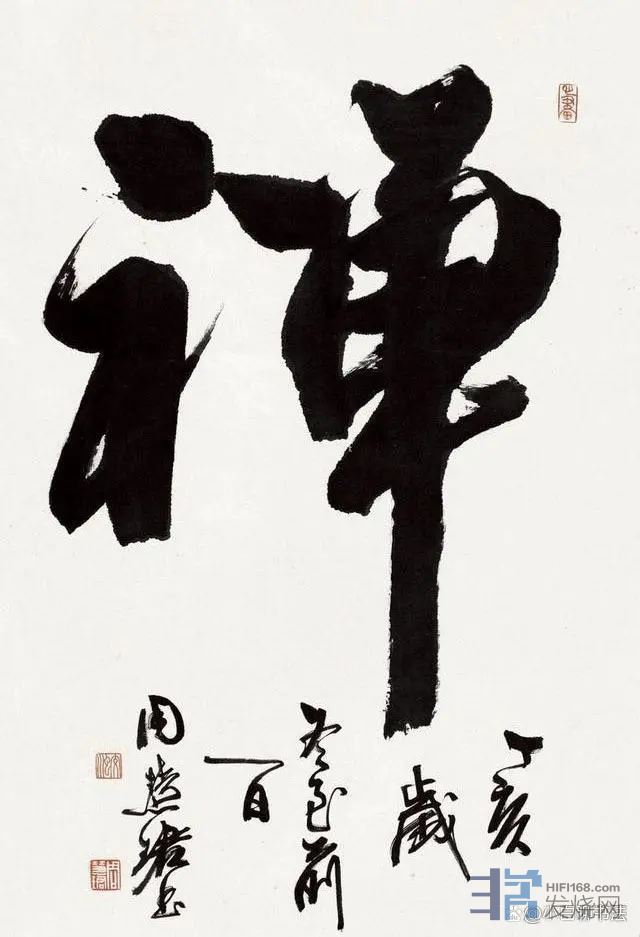 禅
丁亥
歲
冬至前
一日
周慧珺书
HIFI168.com
发烧网